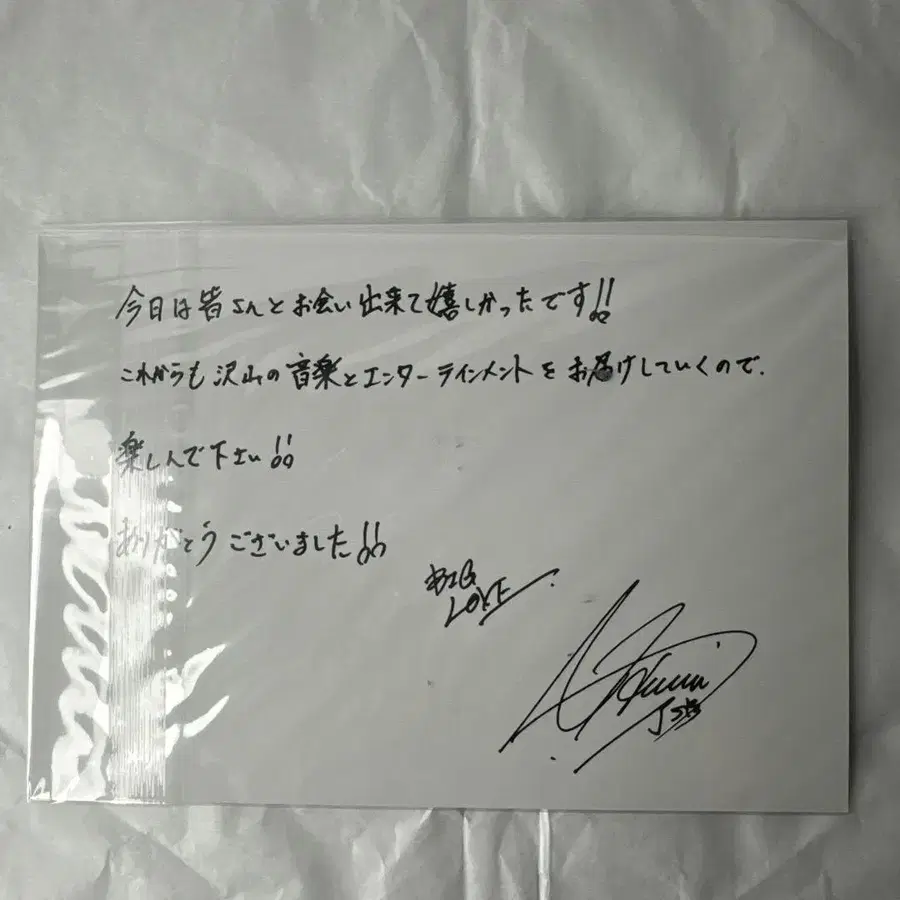 今日は皆さんとお会い出来て嬉しかったです!!
これからも沢山の音楽とエンターテインメントをお届けしていくので、
楽しんで下さい!!
ありがとうございました!!
BIG
LOVE